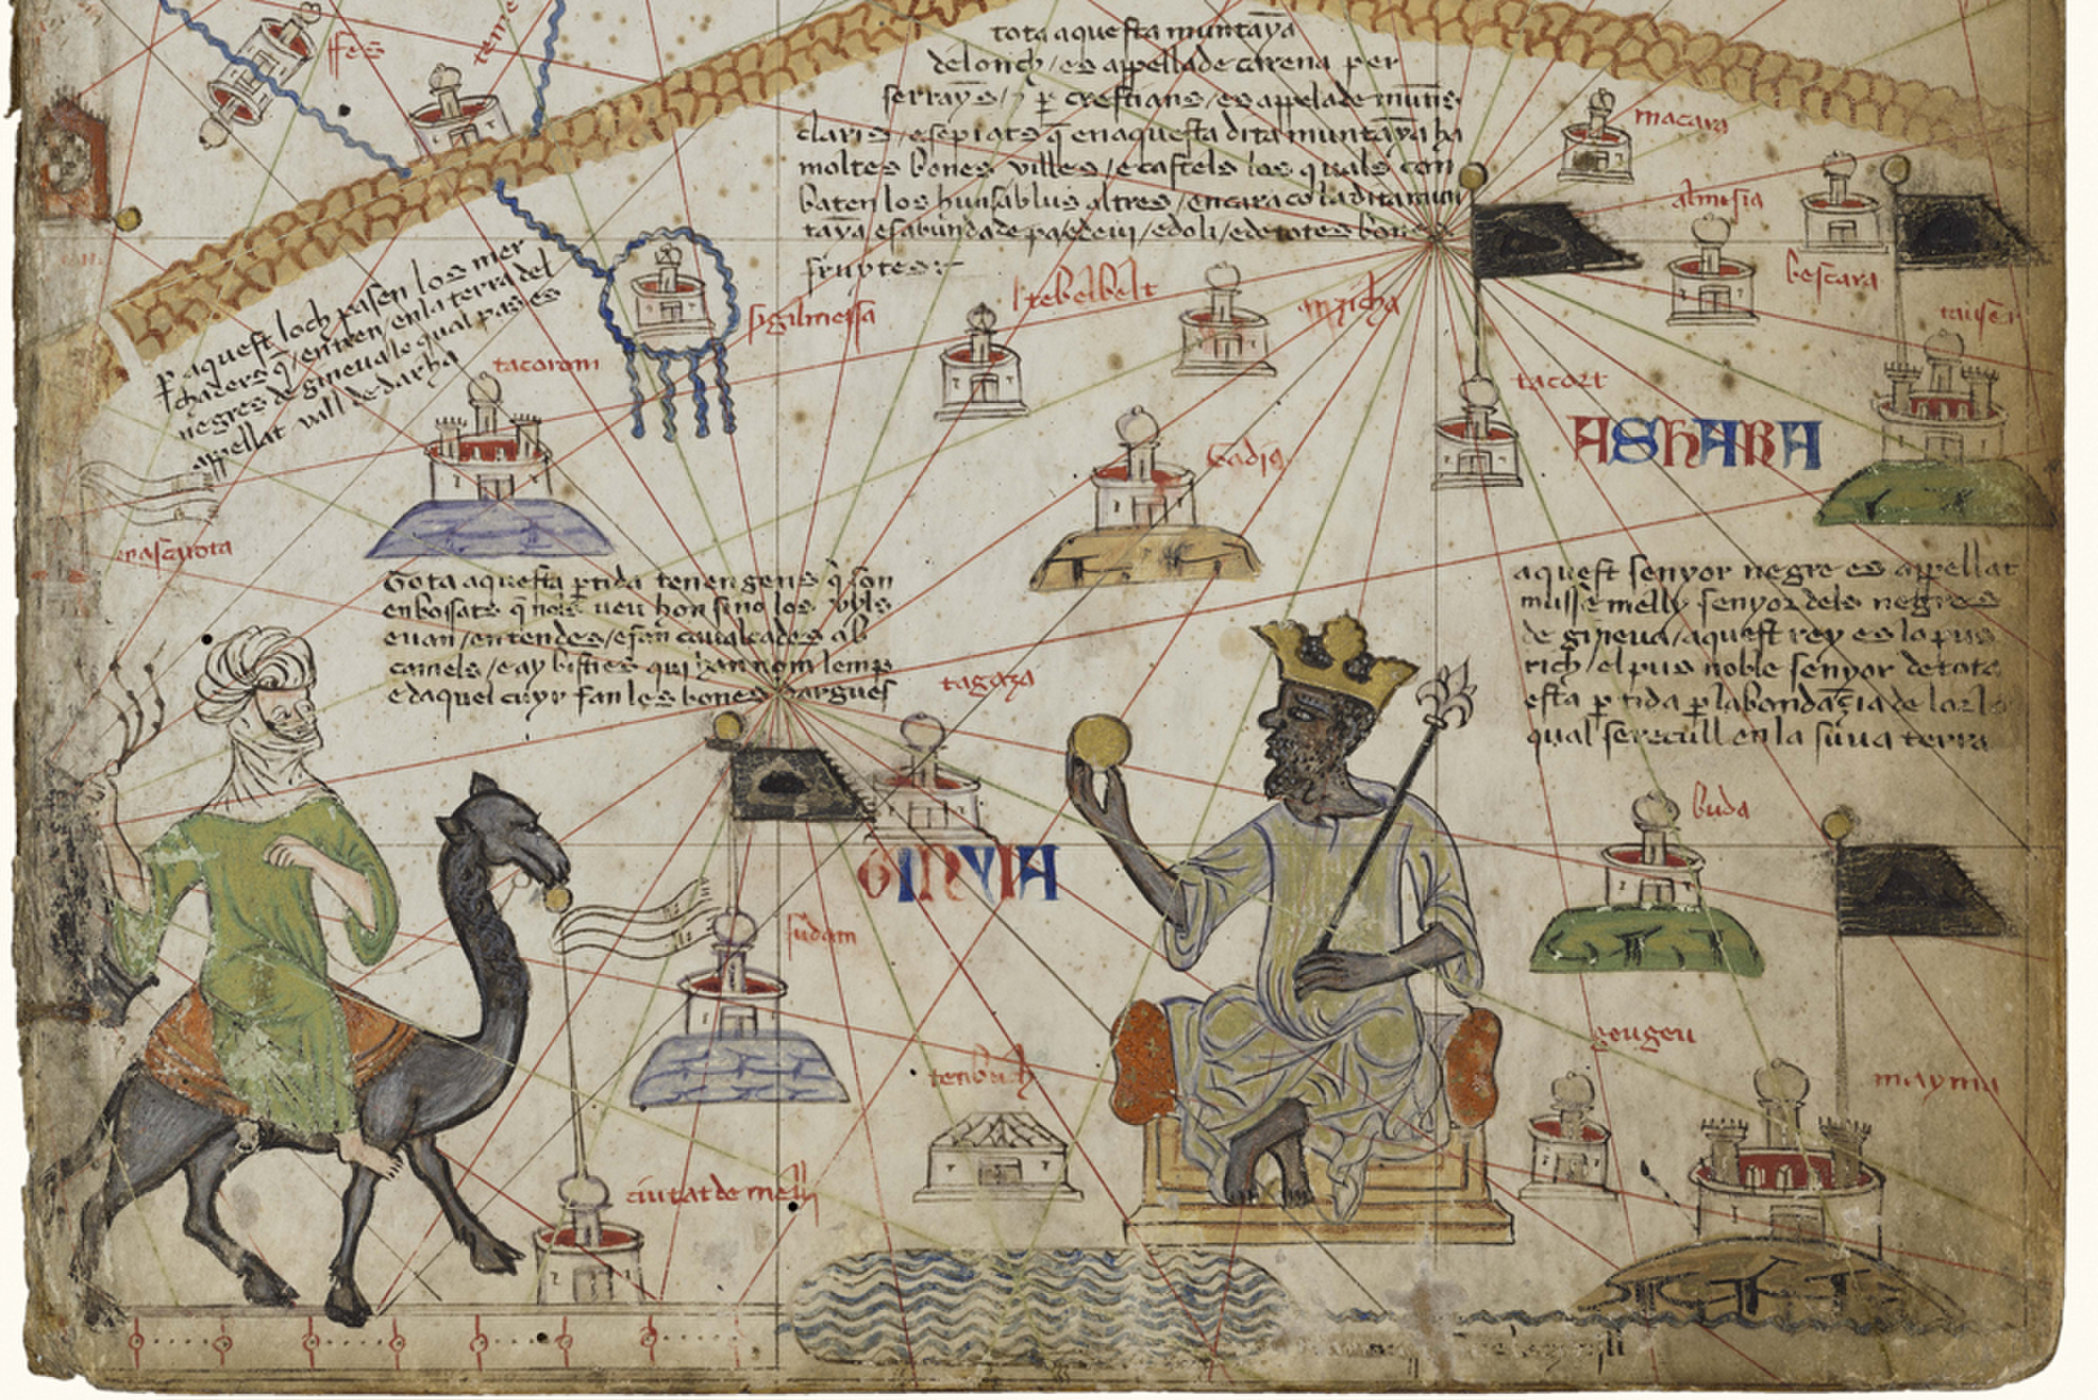 ffes
teme
tota aquesta muntaya
de lonch / es appellade carena per
serrayns / 7 per crestians / es appelade munts
claris / e sepiats q̃ en aquesta dita muntaya ha
moltes bones villes / e castels los quals con
baten los huns ab lus altres / encara co la dita mun
taya es abundade pa e de vi / e d oli / e de totes bones
fruytes :-
macara
almesia
bescara
p̱ aquest loch pasen los mer
chaders q̃ / entren / en la terra del
negres de gineua lo qual pas es
appellat vall de darha
sigilmessa
tebelbelt
anzicha
tacort
tacorom
badji
ASHARA
nascarota
Tota aquesta ptida tenen gens q̃ son
enbossats q̃ nols veu hon sino los uyls
e van / en tendes / e fan caualcades ab
camels / e ay bisties qui han nom lemp
e daquel cuyr fan les bones dargues
aquest senyor negre es appellat
musse melly senyor dels negres
de gineua / aquest rey es lo pus
rich / el pus noble senyor de tota
esta ptida p labondaçia de lor lo
qual se recull en la suua terra
tagaza
buda
GINYIA
sudam
geugeu
tenbuch
mayma
ciutat de melli